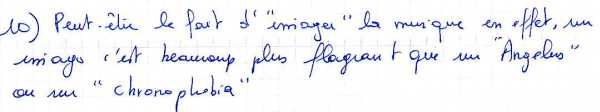 10) Peut-être le fait d'"imager" la musique en effet, un
imago c'est beaucoup plus flagrant que un "Angelus"
ou un "chronophobia"